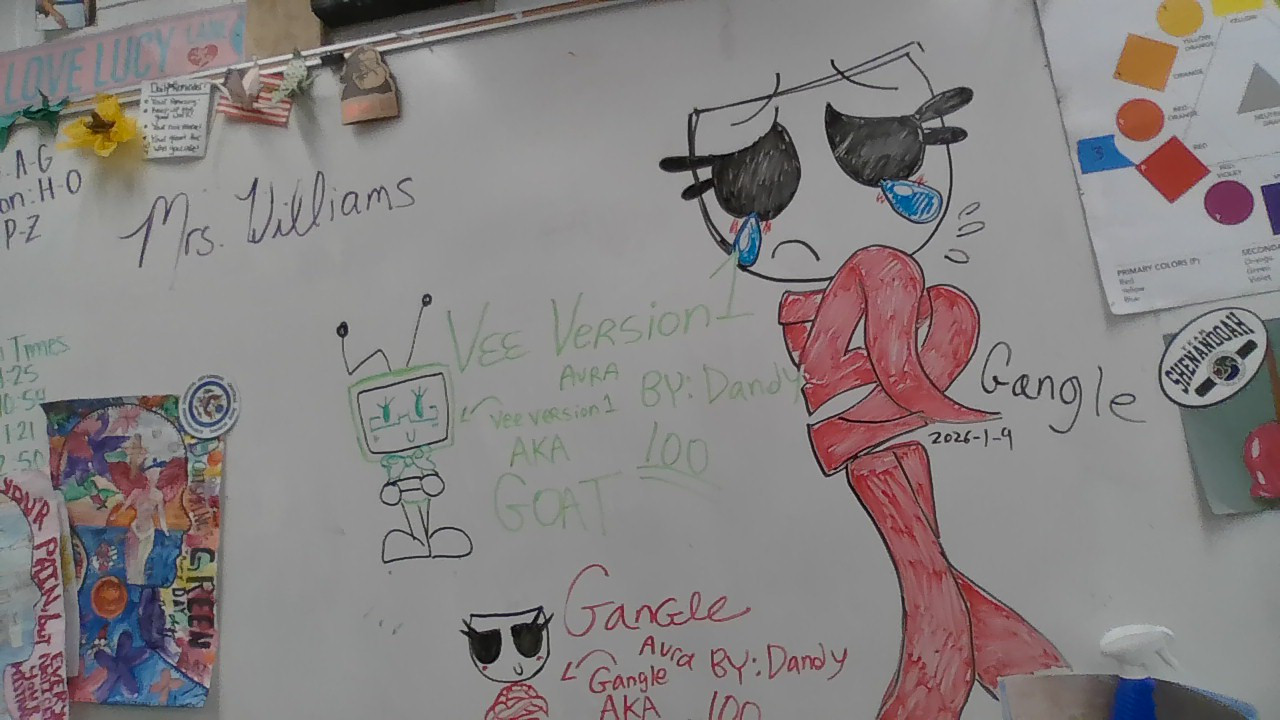 LOVE LUCY LANE
Daily Reminders!
A-G
H-O
P-Z
Mrs. Williams
VEE VERSION 1
AURA
BY: Dandy
Vee version 1
AKA
100
GOAT
Times
1-25
10:54
1 21
2:50
GREEN
DAY
YOUR PAIN, but
Gangle
2026-1-9
GANGLE
Aura
BY: Dandy
Gangle
AKA
100
YELLOW
YELLOW-ORANGE
ORANGE
RED-ORANGE
RED
RED-VIOLET
3
PRIMARY COLORS (P)
Red
Yellow
Blue
SECONDA
Orange
Green
Violet
SHENANDOAH